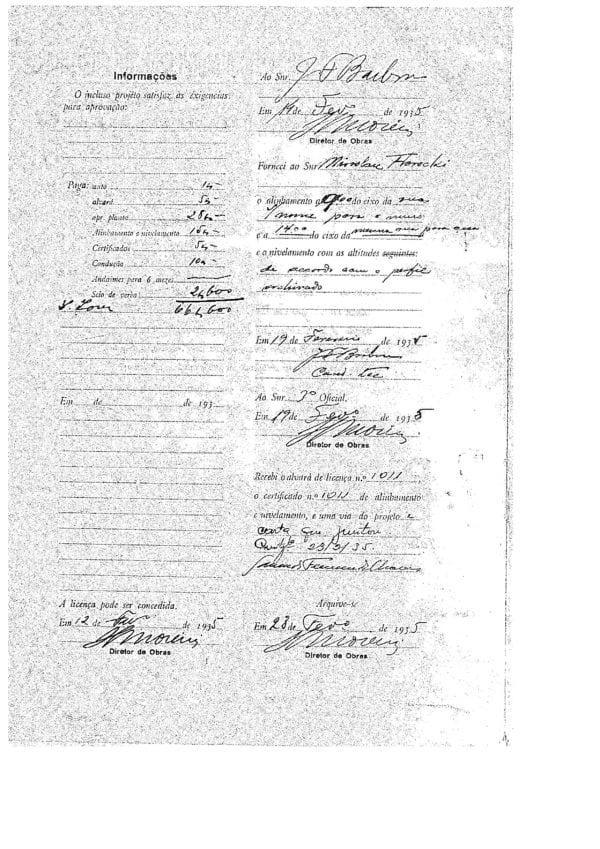 Informações
O incluso projéto satisfaz ás exigencias
para aprovação:
Paga: auto
alvará 5$-
apr. planta
Alinhamento e nivelamento
Certificados 5$-
Condução 10$-
Andaimes para 6 mezes
Selo de verba 2$600
66$600
Em de de 193
A licença pode ser concedida.
Em 12 de Fevº de 1935
Diretor de Obras
Ao Snr. J F Barbosa
Em 19 de Fevº de 1935
Diretor de Obras
Forneci ao Snr. Miroslau
o alinhamento a do eixo da rua
1 nome para o muro
e a 14.00 do eixo da mesma rua para casa
e o nivelamento com as altitudes seguintes:
de accordo com o perfil
archivado
Em 19 de Fevereiro de 1935
Cond. tec
Ao Snr. 3º Oficial.
Em 19 de Fevº de 1935
Diretor de Obras
Recebi o alvará de licença n.º 1011
o certificado n.º 1011 de alinhamento
e nivelamento, e uma via do projéto e
carta que juntou
23/2/35
Arquive-se
Em 28 de Fevº de 1935
Diretor de Obras